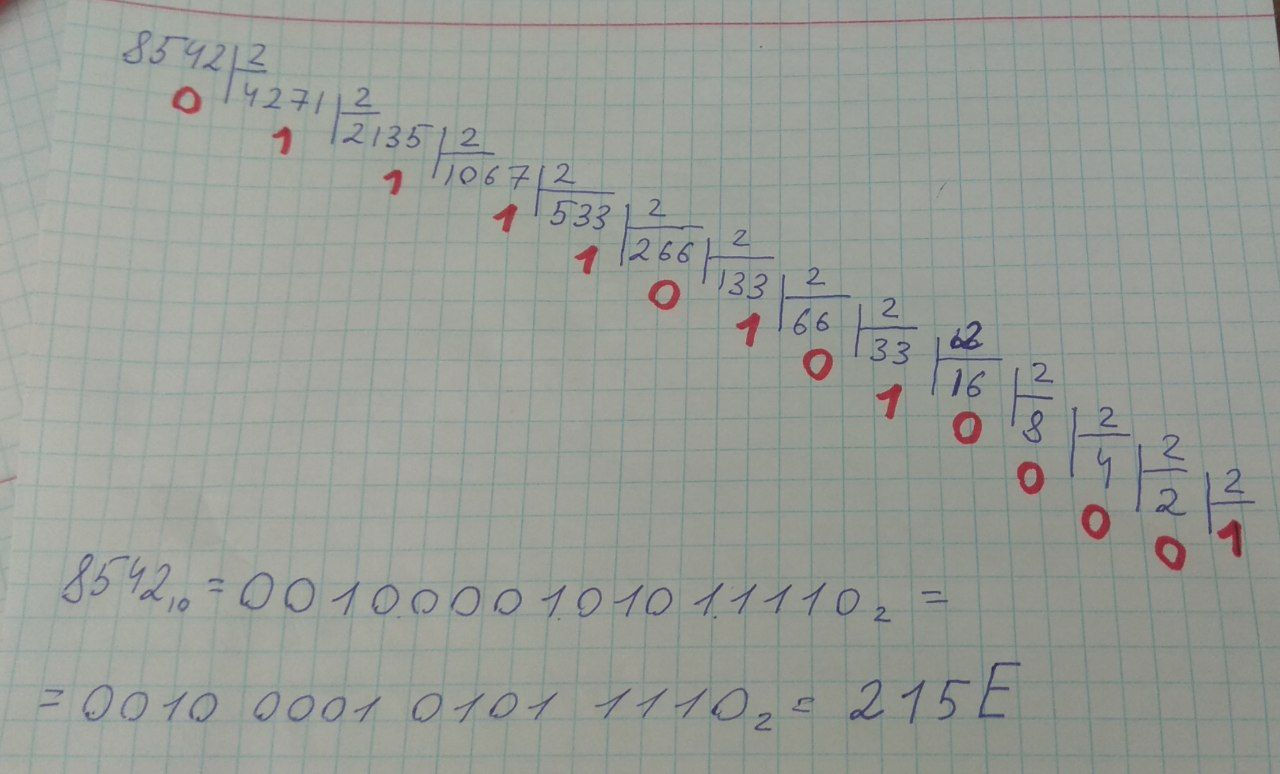 8542 2
0 4271 2
1 2135 2
1 1067 2
1 533 2
1 266 2
0 133 2
1 66 2
0 33 2
1 16 2
0 8 2
0 4 2
0 2 2
0 1
8542₁₀ = 0010.0001.0101.1110₂ =
= 0010 0001 0101 1110₂ = 215E